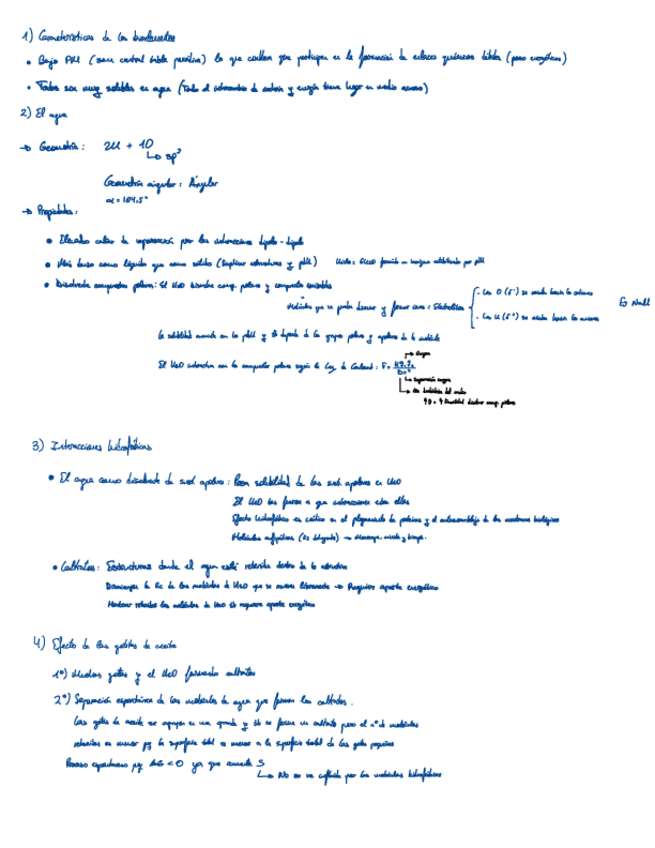 1) Características de los bioelementos
• Bajo PM (zona central tabla periódica) lo que conlleva que participen en la formación de enlaces químicos débiles (poco energéticos)
• Todos son muy solubles en agua (Todo el intercambio de materia y energía tiene lugar en medio acuoso)
2) El agua
→ Geometría: 2H + 1O
↳ sp³
Geometría angular: Angular
α = 104,5°
→ Propiedades:
• Elevado calor de vaporización por las interacciones dipolo-dipolo
• Más denso como líquido que como sólido (Implicar estructuras y pdH)
• Disolvente compuestos polares: El H2O disuelve comp. polares y compuestos ionizables
Moléculas que se pueden disociar y formar iones: Electrolitos
- Los O (δ-) se unirán hacia los cationes
- Los H (δ+) se unirán hacia los aniones
Ej NaCl
La solubilidad aumenta con los pdH y depende de los grupos polares y apolares de la molécula
El H2O interactúa con los compuestos polares según la Ley de Coulomb: F =
→ Cargas
↳ Separación cargas
3) Interacciones hidrofóbicas
• El agua como disolvente de sust. apolares: Poca solubilidad de las sust. apolares en H2O
El H2O las fuerza a que interaccionen entre ellas
Efecto hidrofóbico es crítico en el plegamiento de proteínas y el autoensamblaje de las membranas biológicas
Moléculas anfipáticas
• Clatratos: Estructuras donde el agua está retenida dentro de la estructura
Disminuyen la Ec de las moléculas de H2O que se mueven libremente → Requiere aporte energético
Mantener retenidas las moléculas de H2O requiere aporte energético
4) Efecto de las gotitas de aceite
1º) Muchas gotas y el H2O formando clatratos
2º) Separación espontánea de las moléculas de agua que forman los clatratos.
Las gotas de aceite se agrupan en una grande y se forma un clatrato pero el nº de moléculas
retenidas es menor pq la superficie total es menor a la superficie total de las gotas pequeñas
Proceso espontáneo pq ΔG < 0 ya que aumenta S
↳ No se ve reflejada por las moléculas hidrofóbicas